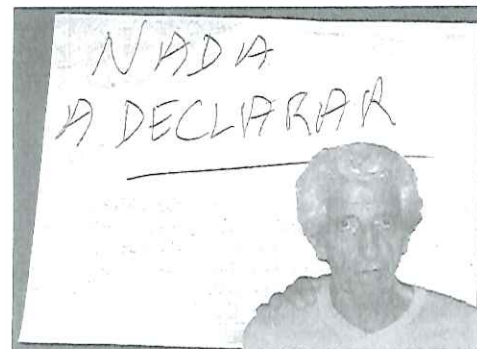 NADA
A DECLARAR